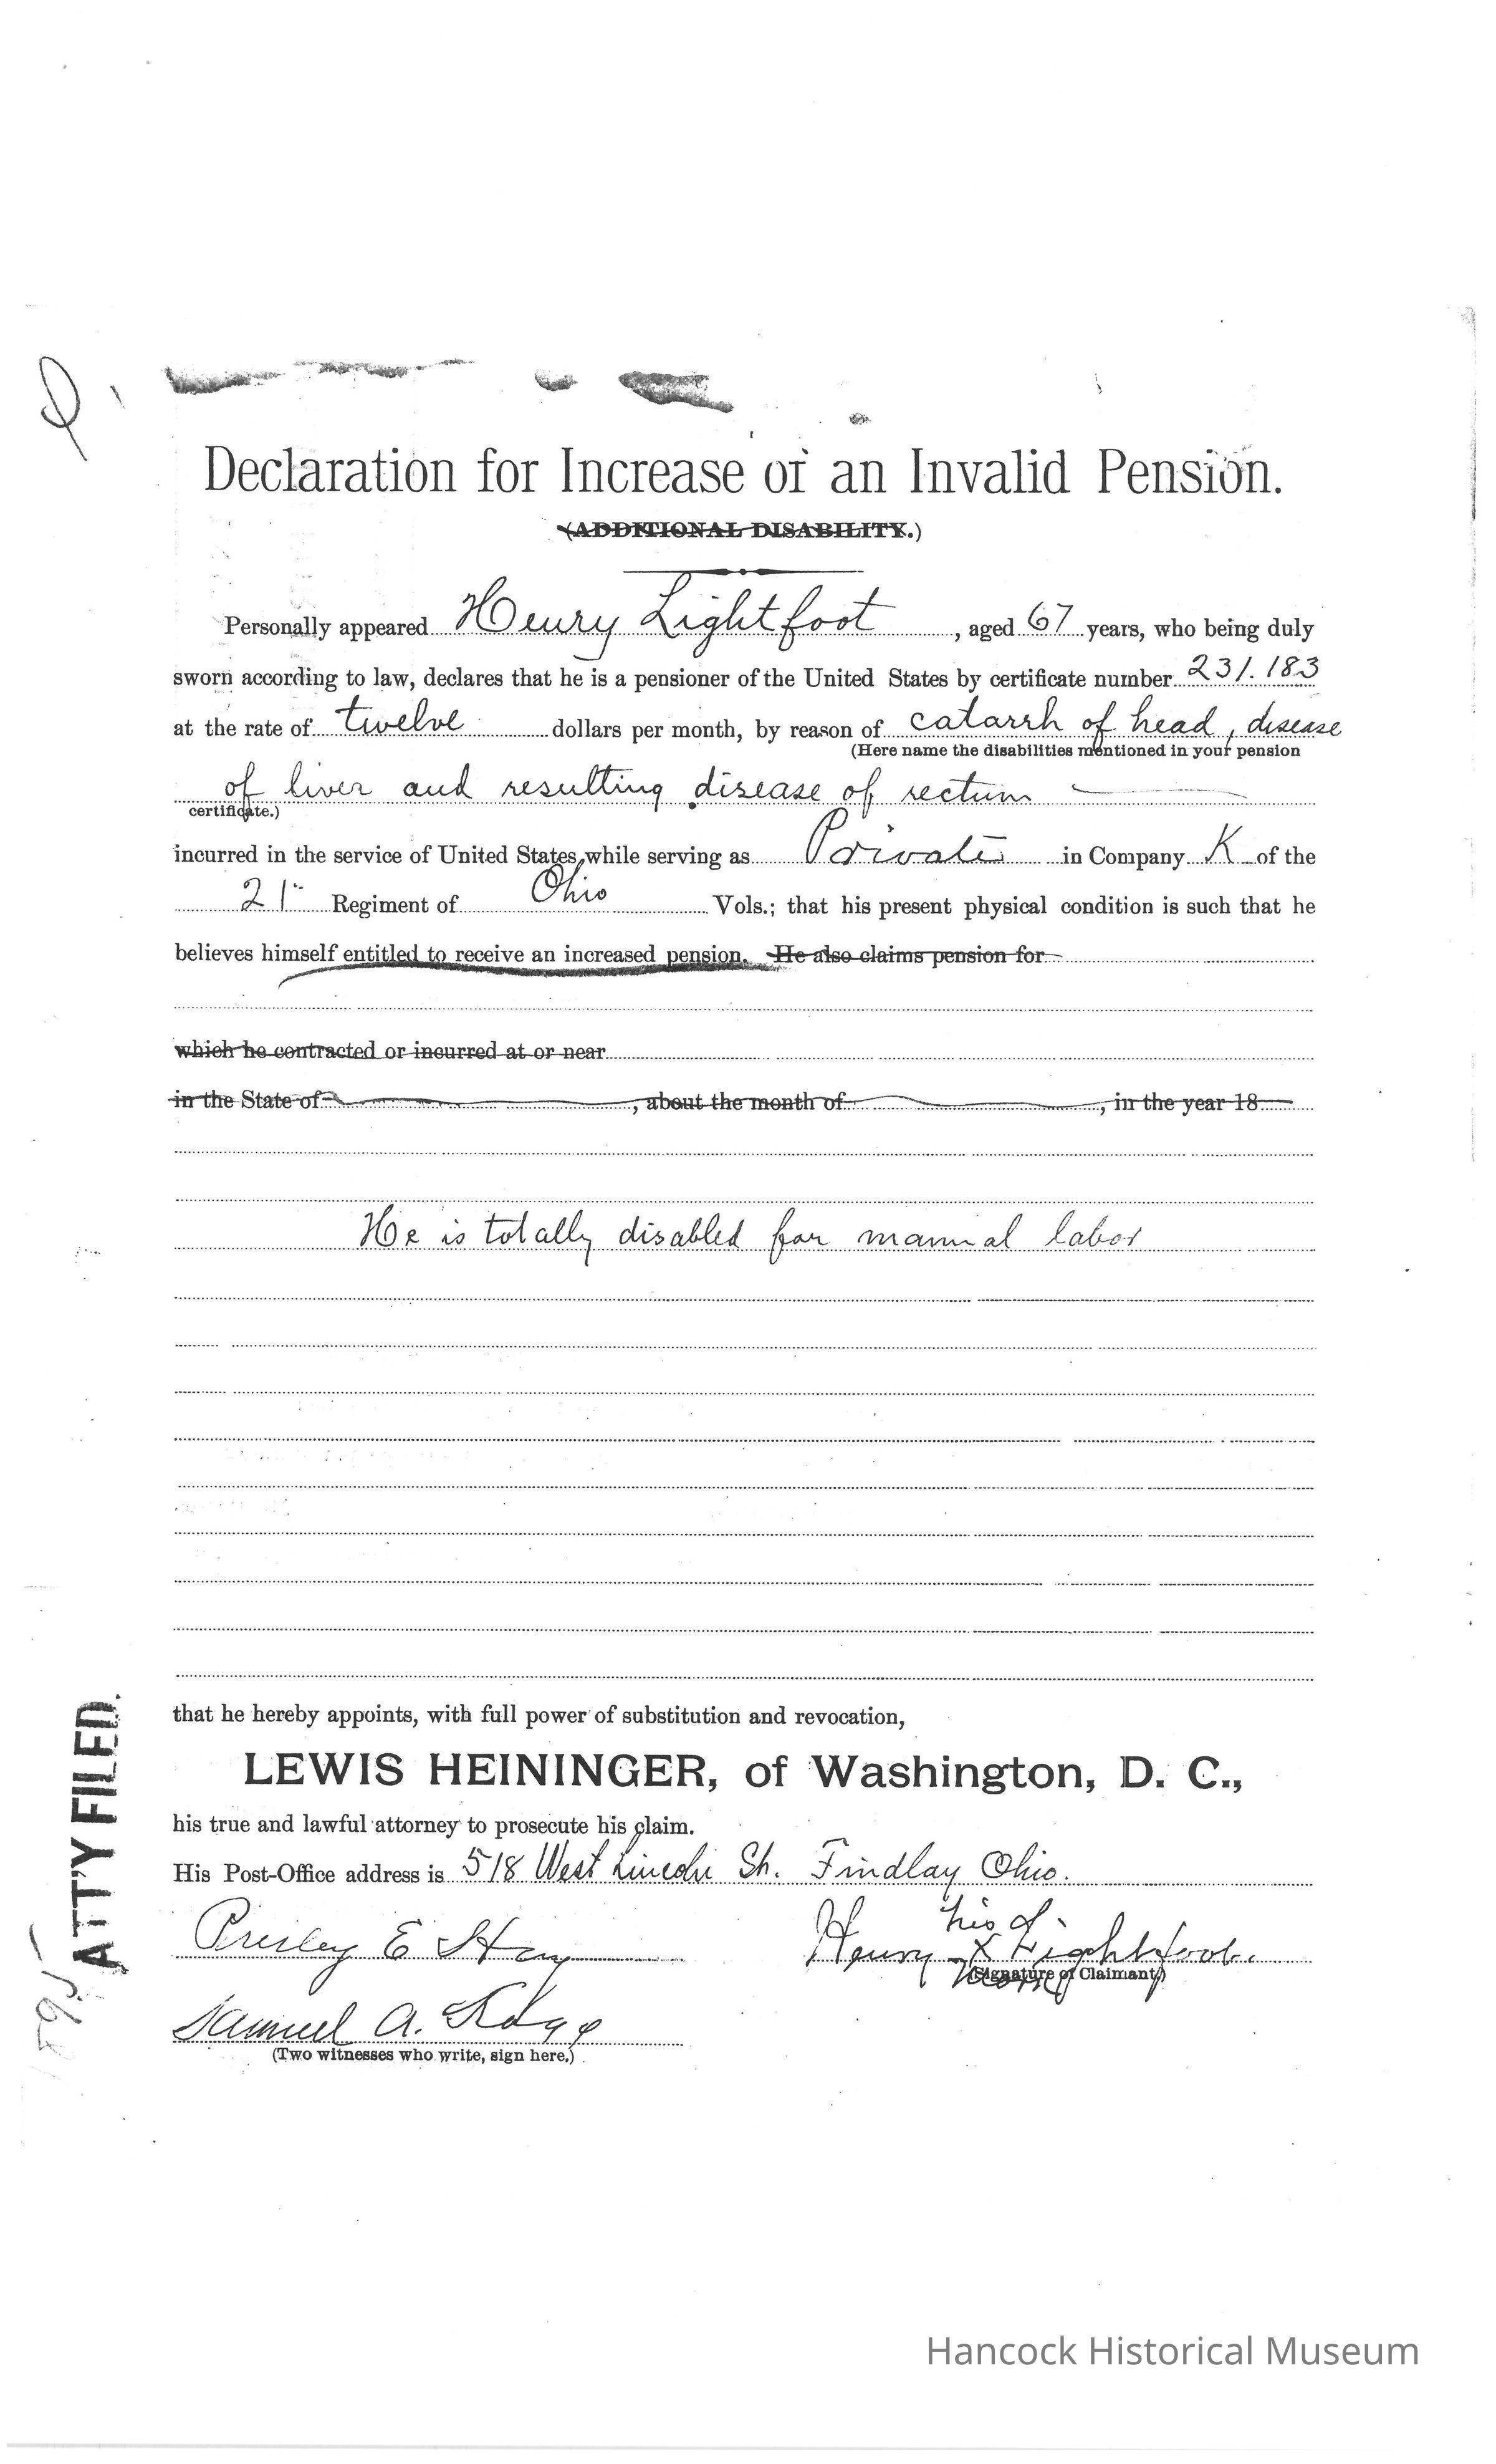 Declaration for Increase of an Invalid Pension.
(ADDITIONAL DISABILITY.)
Personally appeared Henry Lightfoot, aged 67 years, who being duly
sworn according to law, declares that he is a pensioner of the United States by certificate number 231.183
at the rate of twelve dollars per month, by reason of catarrh of head, disease
(Here name the disabilities mentioned in your pension
of liver and resulting disease of rectum
certificate.)
incurred in the service of United States, while serving as Private in Company K of the
21" Regiment of Ohio Vols.; that his present physical condition is such that he
believes himself entitled to receive an increased pension. He also claims pension for
which he contracted or incurred at or near
in the State of , about the month of , in the year 18
He is totally disabled for manual labor
that he hereby appoints, with full power of substitution and revocation,
LEWIS HEININGER, of Washington, D. C.,
his true and lawful attorney to prosecute his claim.
His Post-Office address is 518 West Lincoln St. Findlay Ohio.
Presley E Hay
his
Henry X Lightfoot
mark
(Signature of Claimant.)
Samuel A.
(Two witnesses who write, sign here.)
ATTY FILED.
Hancock Historical Museum